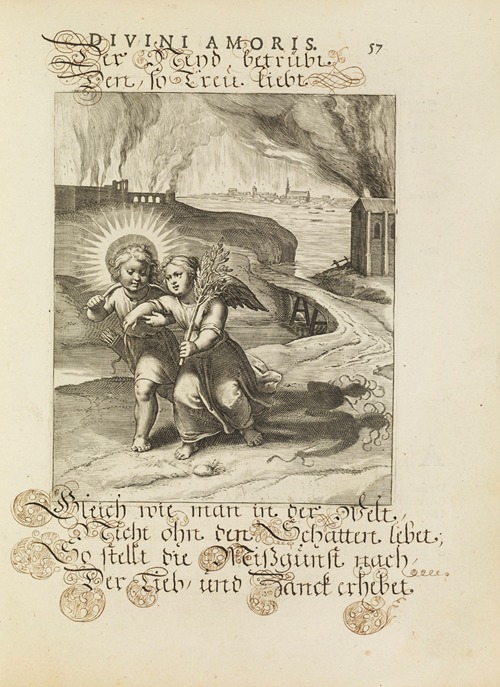 DIVINI AMORIS. 57
Der Neid betrübt
Den, so Treu liebt.
Gleich wie man in der Welt,
Nicht ohn den Schatten lebet;
So stellt die Mißgunst nach,
Der Lieb, und Zanck erhebet.